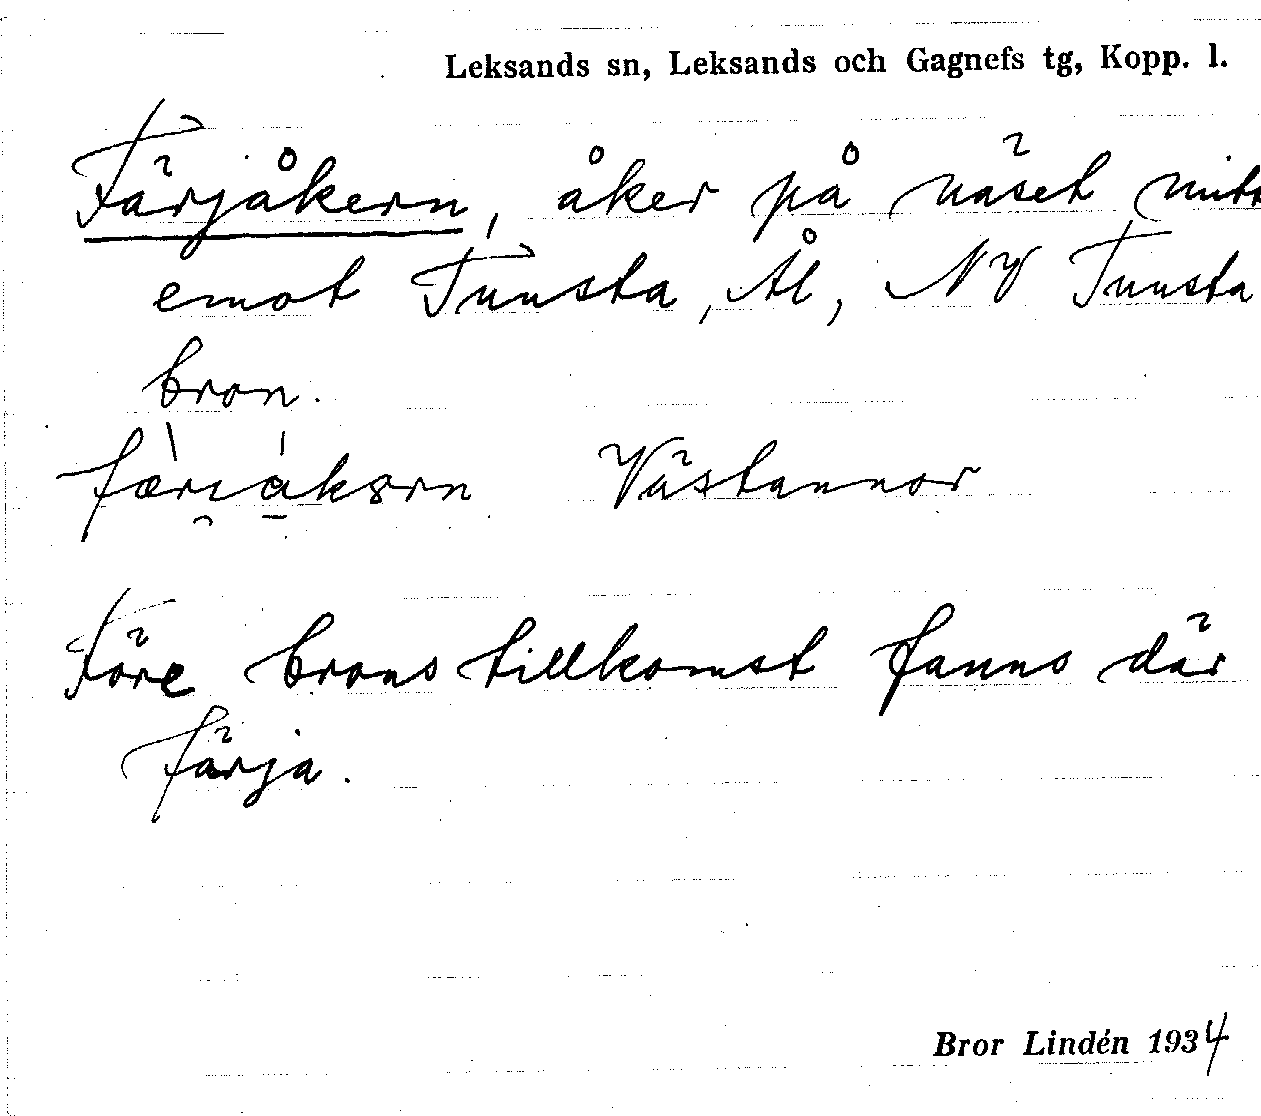 Leksands sn, Leksands och Gagnefs tg, Kopp. l.
Färjåkern, åker på näset mitt
emot Tunsta, Ål, NV Tunsta
bron.
Västannor
Före brons tillkomst fanns där
färja.
Bror Lindén 1934